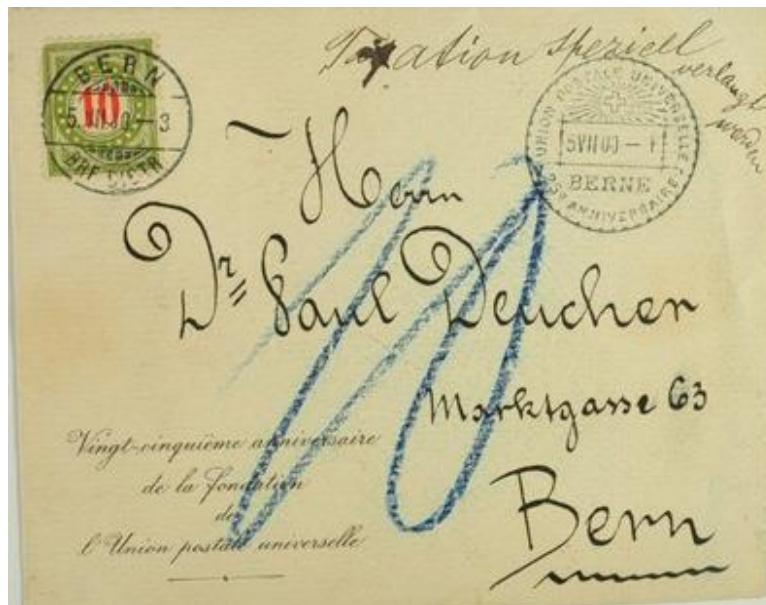 Taxation speziell
verlangt
werden
BERN
10
5.VII.00-3
BRF. DISTR.
UNION POSTALE UNIVERSELLE
5VII00-1
BERNE
25e ANNIVERSAIRE
Herrn
Dr. Paul Deucher
Marktgasse 63
Bern
10
Vingt-cinquième anniversaire
de la fondation
de
l'Union postale universelle